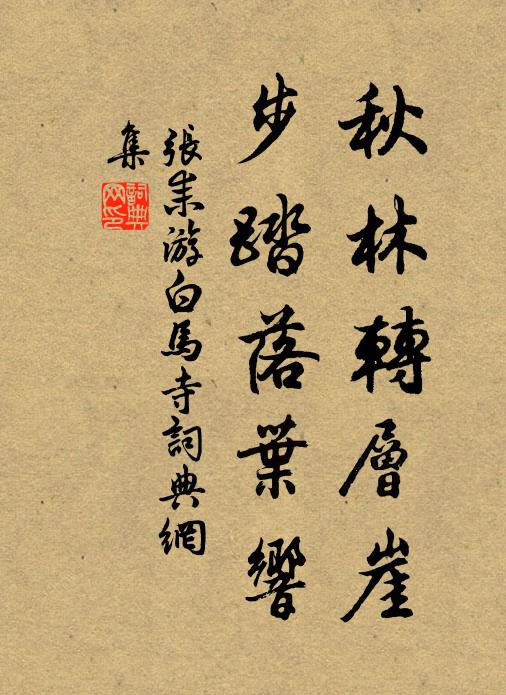 秋林轉層崖
步踏落葉響
張耒游白馬寺詞典網
集
詞典
网印